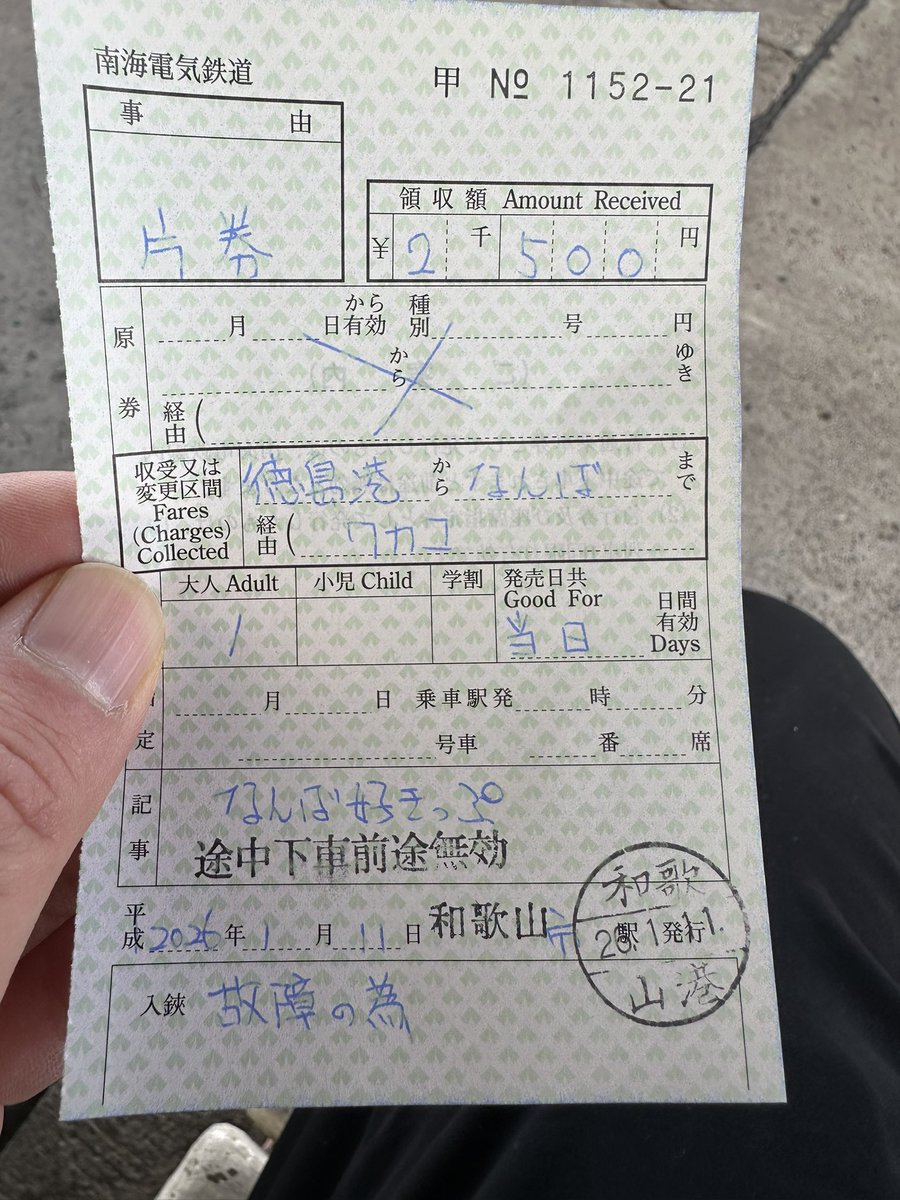 南海電気鉄道
甲 № 1152-21
事由
片券
領収額 Amount Received
¥ 2千500円
原券
月 日から有効 種別 号 円
から ゆき
経由(
収受又は変更区間 Fares (Charges) Collected
徳島港 から なんば まで
経由( ワカコ
大人 Adult 小児 Child 学割 発売日共 Good For 日間有効 Days
1 当日
月 日 乗車駅発 時 分
定 号車 番 席
記事
なんば好きっぷ
途中下車前途無効
平成 2026年 1月 11日 和歌山市
和歌山港
駅発行
26.1.11.
入鋏 故障の為